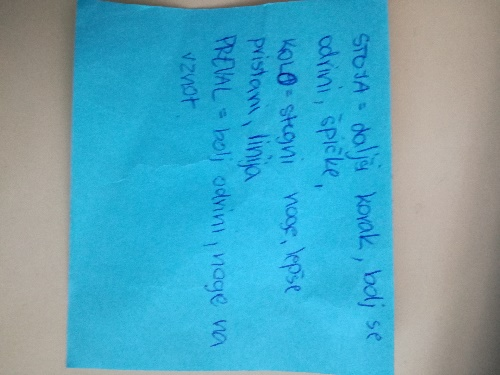 STOJA = daljši korak, bolj se
odrini, špičke,
KOLO = stegni noge, lepše
pristani, linija
PREVAL = bolj odrini, noge na
vznot